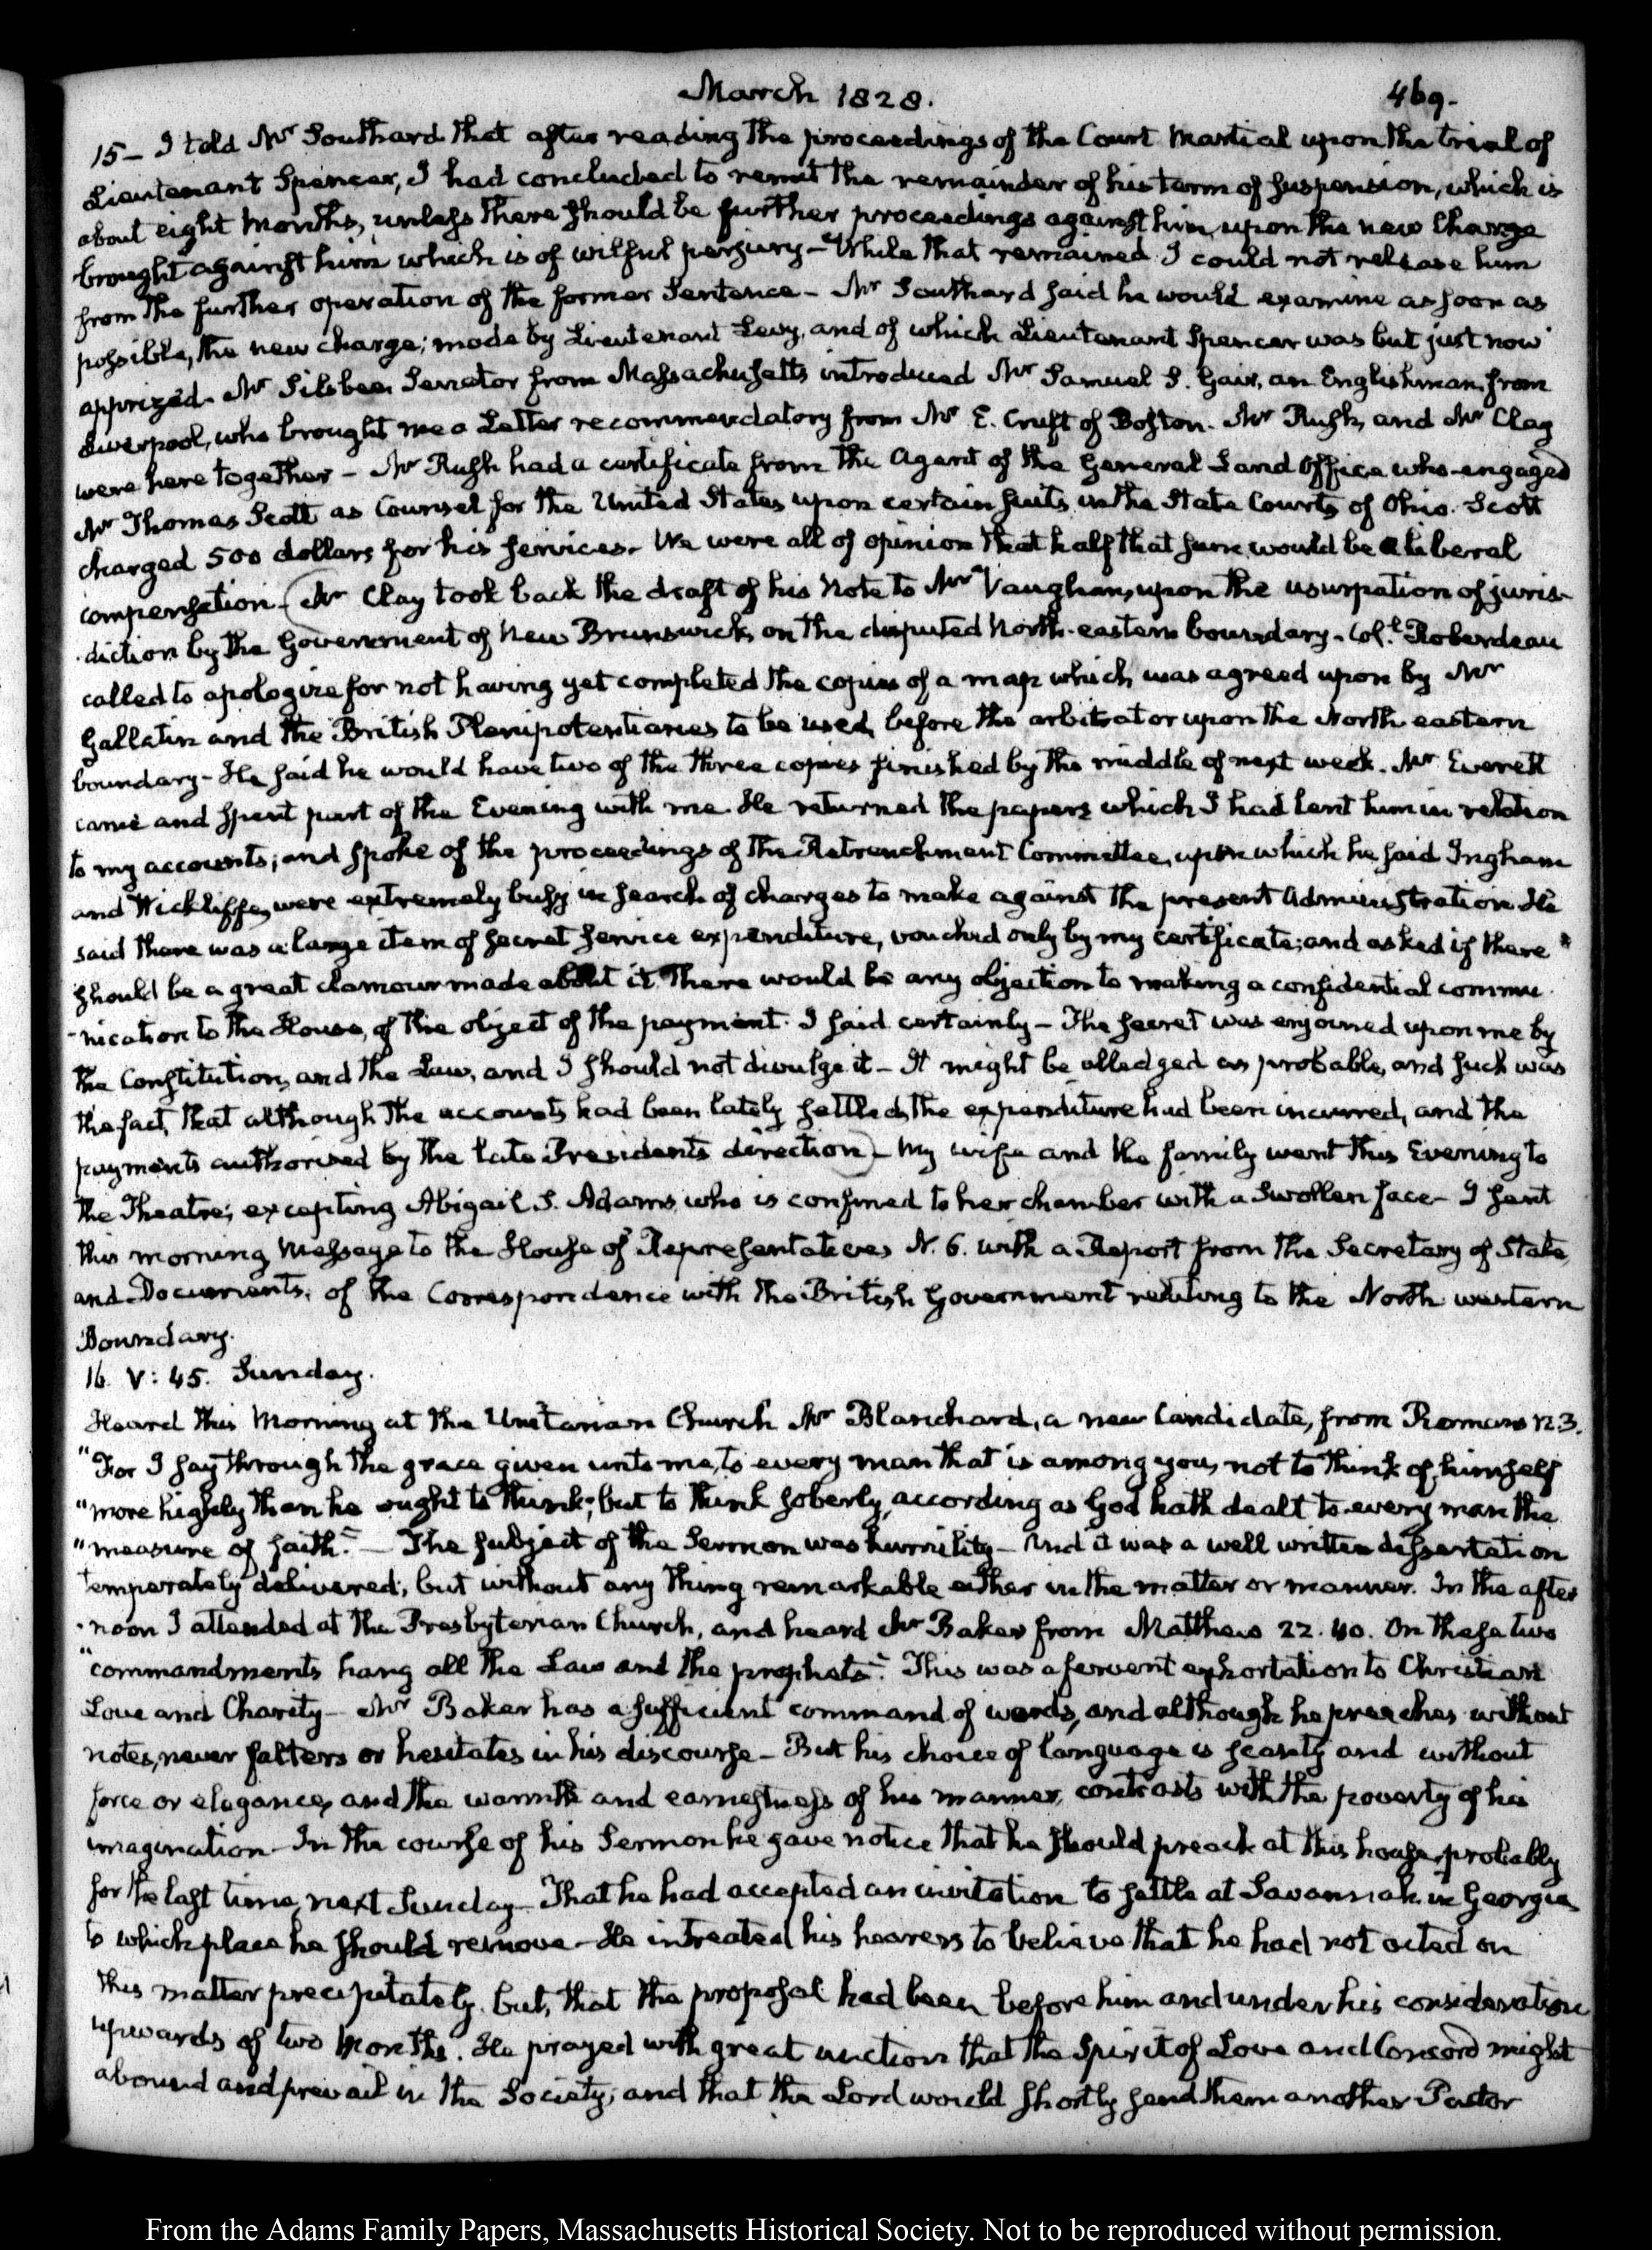 March 1828.
469.
15 – I told Mr Southard that after reading the proceedings of the Court Martial upon the trial of
Lieutenant Spencer, I had concluded to remit the remainder of his term of suspension, which is
about eight Months, unless there should be further proceedings against him, upon the new Charge
brought against him which is of wilful perjury – While that remained I could not release him
from the further operation of the former Sentence – Mr Southard said he would examine as soon as
possible, the new charge; made by Lieutenant Levy, and of which Lieutenant Spencer was but just now
apprized. Mr Silsbee Senator from Massachusetts introduced Mr Samuel S. Gair, an Englishman, from
Liverpool, who brought me a Letter recommendatory from Mr E. Cruft of Boston. Mr Rush, and Mr Clay
were here together – Mr Rush had a certificate from the Agent of the General Land Office who engaged
Mr Thomas Scott as Counsel for the United States upon certain suits in the State Courts of Ohio. Scott
charged 500 dollars for his services. We were all of opinion that half that sum would be a liberal
compensation. (Mr Clay took back the draft of his Note to Mr Vaughan, upon the usurpation of juris-
-diction by the Government of New Brunswick, on the disputed North-eastern boundary. Colt. Roberdeau
called to apologize for not having yet completed the copies of a map which was agreed upon by Mr
Gallatin and the British Plenipotentiaries to be used before the arbitrator upon the North eastern
boundary – He said he would have two of the three copies finished by the middle of next week. Mr Everett
came and spent part of the Evening with me. He returned the papers which I had lent him in relation
to my accounts; and spoke of the proceedings of the Retrenchment Committee, upon which he said Ingham
and Wickliffe, were extremely busy in search of charges to make against the present Administration. He
said there was a large item of secret service expenditure, vouched only by my certificate; and asked if there
should be a great clamour made about it there would be any objection to making a confidential commu-
-nication to the House, of the object of the payment. I said certainly – The secret was enjoined upon me by
the Constitution, and the Law, and I should not divulge it – It might be alledged as probable, and such was
the fact, that although the accounts had been lately settled, the expenditure had been incurred, and the
payments authorized by the late Presidents direction) – My wife and the family went this Evening to
the Theatre; excepting Abigail S. Adams, who is confined to her chamber with a swollen face – I sent
this morning Message to the House of Representatives N. 6. with a Report from the Secretary of State,
and Documents, of the Correspondence with the British Government relating to the North western
Boundary.
16. V: 45. Sunday.
Heard this Morning at the Unitarian Church Mr Blanchard, a new Candidate, from Romans 12 3.
"For I say through the grace given unto me, to every man that is among you, not to think of himself
"more highly than he ought to think; but to think soberly, according as God hath dealt to every man the
"measure of faith." – The subject of the Sermon was humility – And it was a well written dissertation
temperately delivered; but without any thing remarkable either in the matter or manner. In the after-
-noon I attended at the Presbyterian Church, and heard Mr Baker from Matthew 22. 40. On these two
"commandments hang all the Law and the prophets." This was a fervent exhortation to Christian
Love and Charity – Mr Baker has a sufficient command of words, and although he preaches without
notes, never falters or hesitates in his discourse – But his choice of language is scanty and without
force or elegance, and the warmth and earnestness of his manner, contrasts with the poverty of his
imagination – In the course of his Sermon he gave notice that he should preach at this house, probably
for the last time, next Sunday – That he had accepted an invitation to settle at Savannah in Georgia
to which place he should remove – He intreated his hearers to believe that he had not acted on
this matter precipitately. but, that the proposal had been before him and under his consideration
upwards of two Months. He prayed with great unction that the Spirit of Love and Concord might
abound and prevail in the Society; and that the Lord would shortly send them another Pastor
From the Adams Family Papers, Massachusetts Historical Society. Not to be reproduced without permission.